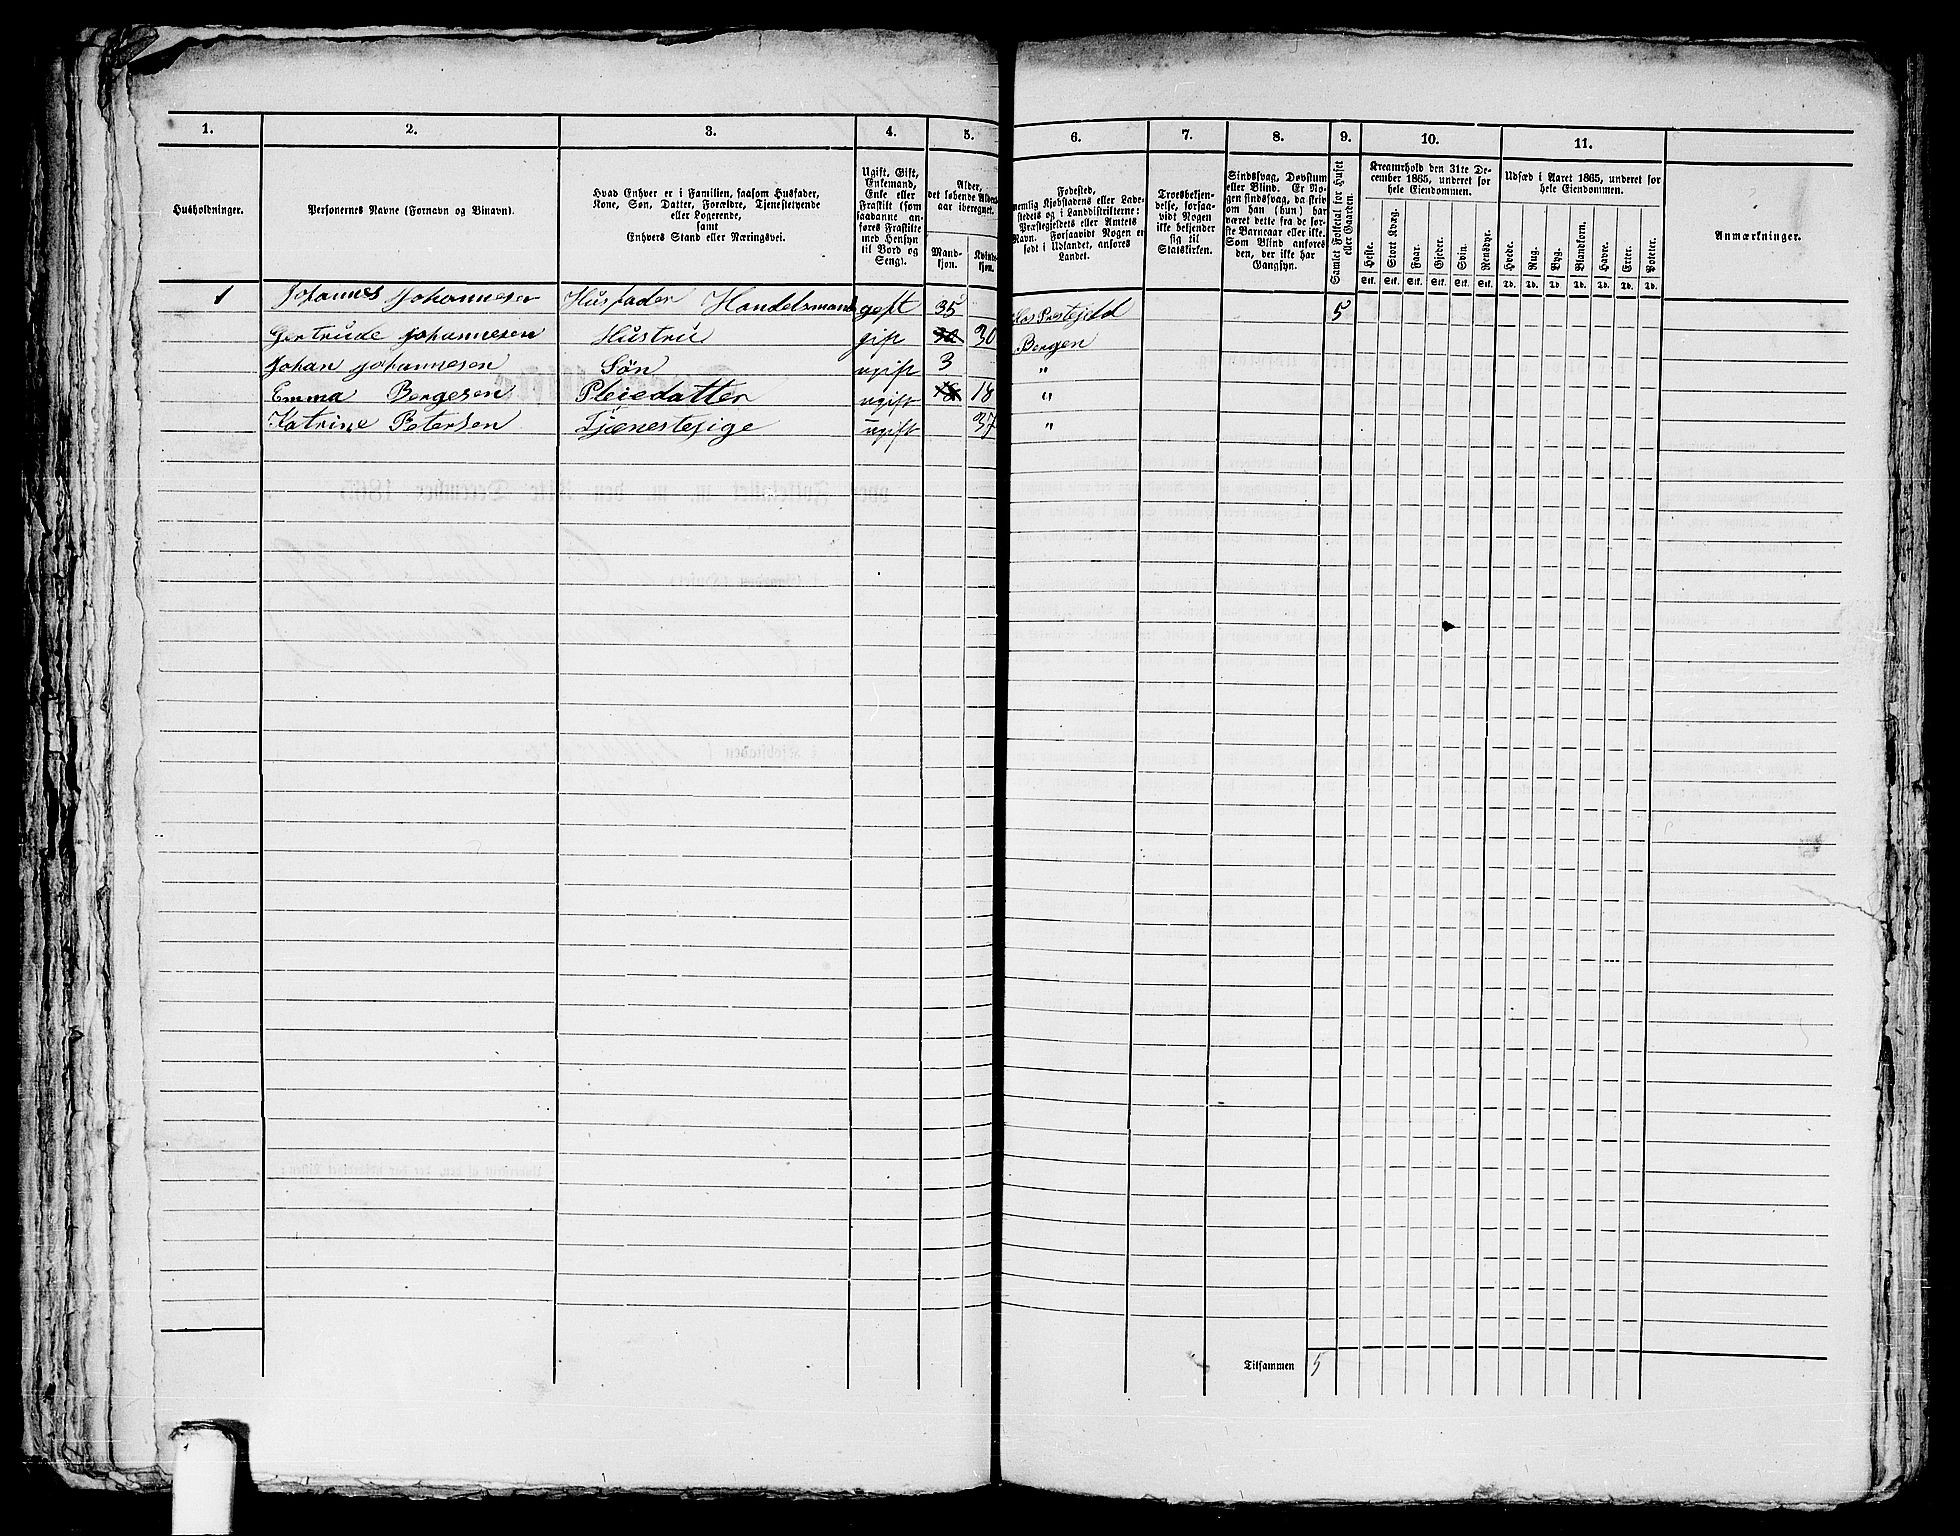 1. 2. 3. 4. 5. 6. 7. 8. 9. 10. 11.
Husholdninger.
Personernes Navne (Fornavn og Binavn).
Hvad Enhver er i Familien, saasom Husfader,
Kone, Søn, Datter, Forældre, Tjenestetyende
eller Logerende,
samt
Enhvers Stand eller Næringsvei.
Ugift, Gift,
Enkemand,
Enke eller
Fraskilt (som
saadanne an-
føres Fraskilte
med Hensyn
til Bord og
Seng).
Alder,
det løbende Alders-
aar iberegnet.
Mand-
kjøn.
Kvind-
kjøn.
Fødested,
nemlig Kjøbstadens eller Lade-
stedets og i Landdistrikterne:
Præstegjeldets eller Amtets
Navn. Forsaavidt Nogen er
født i Udlandet, anføres
Landet.
Troesbekjen-
delse, forsaa-
vidt Nogen
ikke bekjender
sig til
Statskirken.
Sindssvag, Døvstum
eller Blind. Er No-
gen sindssvag, da skriv
om han (hun) har
været dette fra de før-
ste Barneaar eller ikke.
Som Blind anføres
den, der ikke har
Gangsyn.
Samlet Folketal for Huset
eller Gaarden.
Kreaturhold den 31te De-
cember 1865, underet for
hele Eiendommen.
Heste. Stort Kvæg. Faar. Gjeder. Svin. Rensdyr.
Stk. Stk. Stk. Stk. Stk. Stk.
Udsæd i Aaret 1865, underet for
hele Eiendommen.
Hvede. Rug. Byg. Blandkorn. Havre. Erter. Poteter.
Td. Td. Td. Td. Td. Td. Td.
Anmærkninger.
1 Johannes Johannesen Husfader Handelsmand gift 35 Prestejeld 5
Gertrude Johannesen Hustru gift 30 30 Bergen
Johan Johannesen Søn ugift 3 "
Emma Bergesen Pleiedatter ugift 18 18 "
Katrine Petersen Tjænestepige ugift 37 "
Tilsammen 5